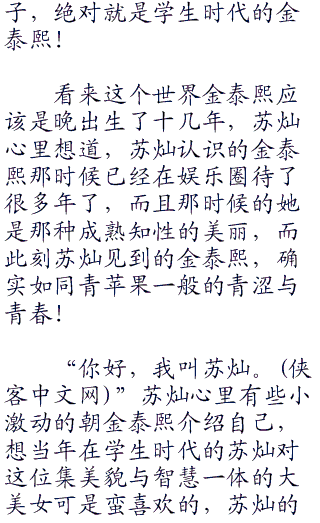 子，绝对就是学生时代的金
泰熙！
看来这个世界金泰熙应
该是晚出生了十几年，苏灿
心里想道，苏灿认识的金泰
熙那时候已经在娱乐圈待了
很多年了，而且那时候的她
是那种成熟知性的美丽，而
此刻苏灿见到的金泰熙，确
实如同青苹果一般的青涩与
青春！
“你好，我叫苏灿。(侠
客中文网)”苏灿心里有些小
激动的朝金泰熙介绍自己，
想当年在学生时代的苏灿对
这位集美貌与智慧一体的大
美女可是蛮喜欢的，苏灿的